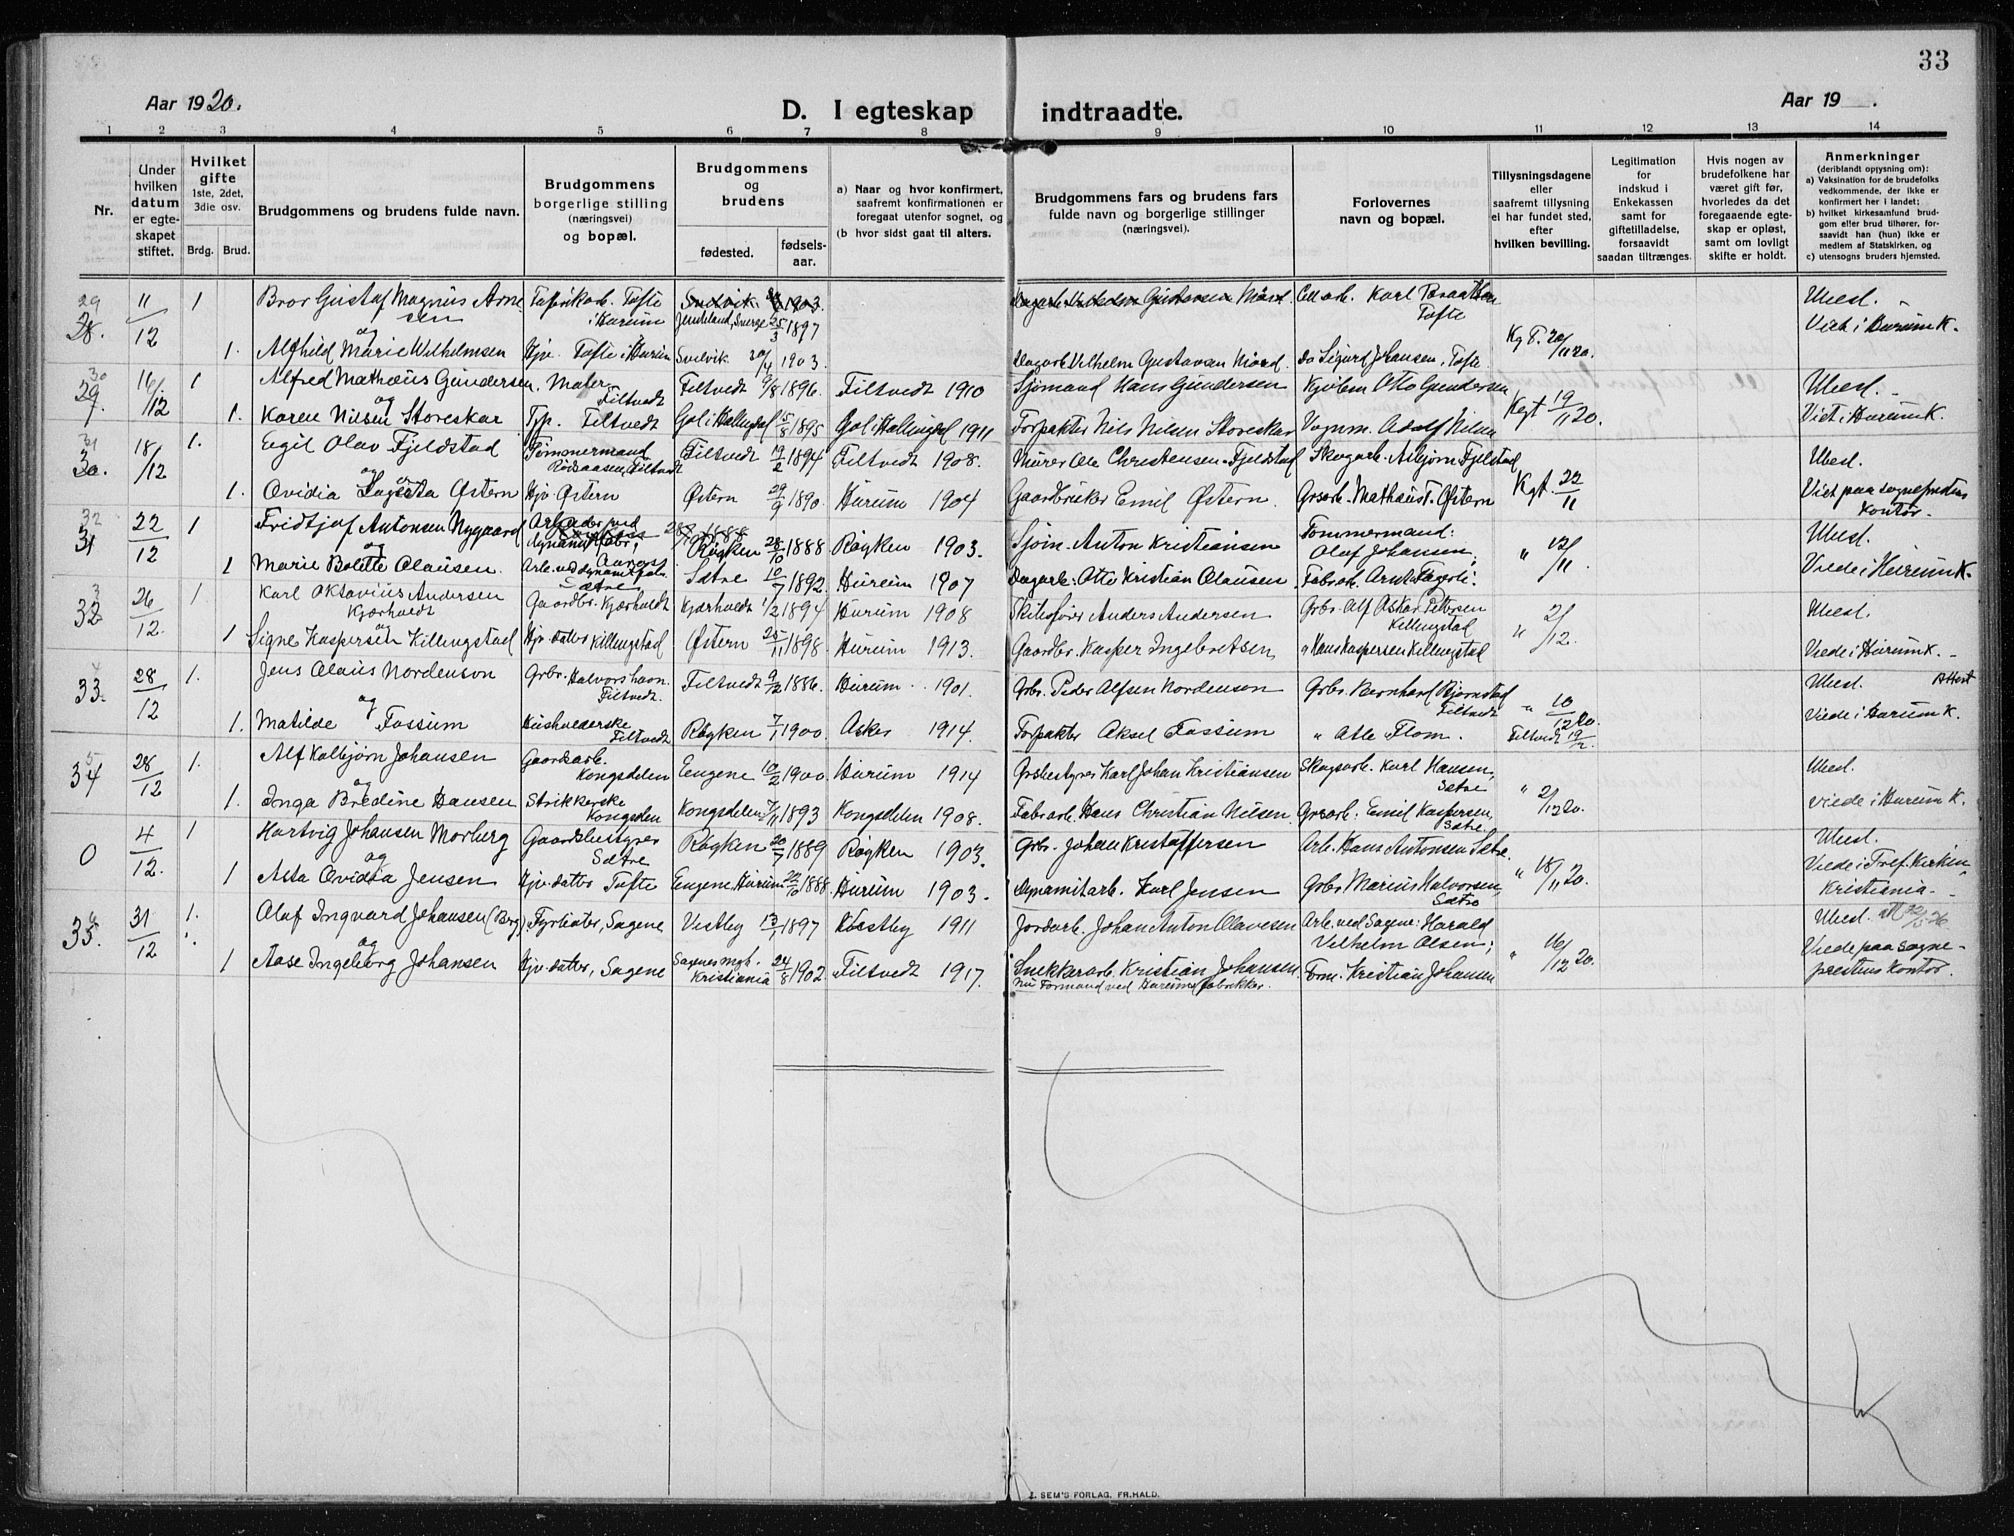 33
Aar 1920.
D. I egteskap indtraadte.
Aar 19 .
1 2 3 4 5 6 7 8 9 10 11 12 13 14
Nr.
Under hvilken datum er egteskapet stiftet.
Hvilket gifte
1ste, 2det, 3die osv.
Brdg. Brud.
Brudgommens og brudens fulde navn.
Brudgommens borgerlige stilling (næringsvei) og bopæl.
Brudgommens og brudens
fødested. fødselsaar.
a) Naar og hvor konfirmert, saafremt konfirmationen er foregaat utenfor sognet, og
(b hvor sidst gaat til alters.
Brudgommens fars og brudens fars fulde navn og borgerlige stillinger (næringsvei).
Forlovernes navn og bopæl.
Tillysningsdagene eller saafremt tillysning ei har fundet sted, efter hvilken bevilling.
Legitimation for indskud i Enkekassen samt for giftetilladelse, forsaavidt saadan tiltrænges.
Hvis nogen av brudefolkene har været gift før, hvorledes da det foregaaende egteskap er opløst, samt om lovligt skifte er holdt.
Anmerkninger
(deriblandt opjysning om):
a) Vaksination for de brudefolks vedkommende, der ikke er konfirmert her i landet;
b) hvilket kirkesamfund brudgom eller brud tilhører, forsaavidt han (hun) ikke er medlem af Statskirken, og
c) utensogns bruders hjemsted.
29 28. 11/12 1 Bror Gustaf Magnus Arnesen Fabrikarb. Tofte i Hurum Svelvik 1903. Jendeland, Sverge 25/3 1897 Dagarb. Vilhelm Gustavsen Cell arb. Karl Braathen Tofte Ubesl.
og Viet i Hurum K.
1. Alfhild Marie Wilhelmsen Hjv. Tofte i Hurum Svelvik 20/4 1903. Dagarb. Vilhelm Gustavsen Do Sigurd Johansen, Tofte Kg T. 20/11 20.
30 29. 16/12 1 Alfred Mathæus Gundersen. Mater. Filtvedt Filtvedt 9/8 1896. Filtvedt 1910 Sjømand Hans Gundersen Kjøbm Otto Gundersen Ubesl.
og
1. Karen Nilsen Storeskar Tjp. Filtvedt Gol i Hallingdal 15/8 1895 Gol i Hallingdal 1911 Forpakter Nils Nilsen Storeskar Vognm. Adolf Nilsen Kgt 19/11 20. Viet i Hurum K.
31 30. 18/12 1. Egil Olav Fjeldstad Tømmermand Rødsaasen, Filtvedt Filtvedt 19/2 1894 Filtvedt 1908. Murer Ole Christensen Fjeldstad Skogarb. Asbjørn Fjelstad Ubesl.
og
1. Ovidia Østern Hjv. Østern Østern 29/9 1890. Hurum 1904 Gaardbruker Emil Østern. Kgt. 22/11 Viet paa sogneprestens kontor.
32 31 22/12 1 Fridtjof Antonsen Nygaard Arbeider ved dynamitfabr. 1888 Røyken 28/10 1888 Røyken 1903. Sjøm. Anton Kristiansen Tømmermand: Olaf Johansen, Ubesl.
og
1 Marie Bolette Olausen. Arb. ved dynamitfabr. Sætre Sætre 10/7 1892. Hurum 1907 Dagarb: Otto Kristian Olausen Fabr arb. " 12/11 Viede i Hurum K.
3 32 26/12. 1. Karl Oktavius Andersen Kjærholdt Gaardbr. Kjærholdt Kjærholdt 1/2 1894 Hurum 1908 Skibsfører Anders Andersen Grbr. Alf Oskar Pettersen Killingstad Ubesl.
og
1 Signe Kaspersen Killingstad Hjv. datter Killingstad Østern 25/11 1898. Hurum 1913. Gaardbr. Kasper Ingebretsen " Hans Kaspersen Killingstad " 2/12. Viede i Hurum K.
4 33. 28/12 1. Jens Olaus Nordenson Grbr. Halvorshavn. Filtvedt. Filtvedt 9/12 1886. Hurum 1901. Grbr. Peder Alfsen Nordenson Grbr. Bernhard Bjørnstad Filtvedt Ubesl. Attest
og
1. Matilde Fossum Husholderske Filtvedt Røyken 7/1 1900. Asker 1914. Forpakter Aksel Fossum " Atle Flom. " 10/12 20. Filtvedt 19/12. Viede i Hurum K.
5 34 28/12 1. Alf Kolbjørn Johansen Gaardsarb. Kongsdelen Eugene 10/2 1900 Hurum 1914 Grbestyrer Karl Johan Kristiansen Skogsarb. Karl Hansen, Sætre Ubesl.
og
1. Inga Bredine Hansen Strikkerske Kongsdelen Kongsdelen 7/11 1893 Kongsdelen 1908. Fabr arb. Hans Christian Nilsen. Grsarb. Emil Kaspersen, Sætre " 2/12 20. Viede i Hurum K.
0 4/12. 1 Hartvig Johansen Morberg Gaardsbestyrer Sætre Røyken 20/7 1889 Røyken 1903. Grbr. Johan Kristoffersen Arb. Hans Antonsen Sætre. Ubesl.
og
1 Asta Ovidia Jensen Hjv. datter Tofte Eugene Hurum 22/10 1888. Hurum 1903. Dynamitarb. Karl Jensen Grbr. Marius Halvorsen, Sætre " 18/11 20. Viede i Tref. Kirken, Kristiania.
6 35. 31/12 1. Olaf Ingvard Johansen (Berg) Fyrbøter, Sagene Vestby 13/1 1897 Vestby 1911 Jordarb. Johan Anton Olavesen Arb. ved Sagene: Harald Vilhelm Olsen; Ubesl.
og
1 Aase Ingeborg Johansen Hjv. datter, Sagene Sagenes mgh. Kristiania 24/8 1902 Filtvedt 1917. Snekkerarb. Kristian Johansen. nu Formand ved Hurums fabrikker. Form. Kristian Johansen " 16/12 20. Viede paa sogneprestens kontor.
E. SEM'S FORLAG, FR.HALD.